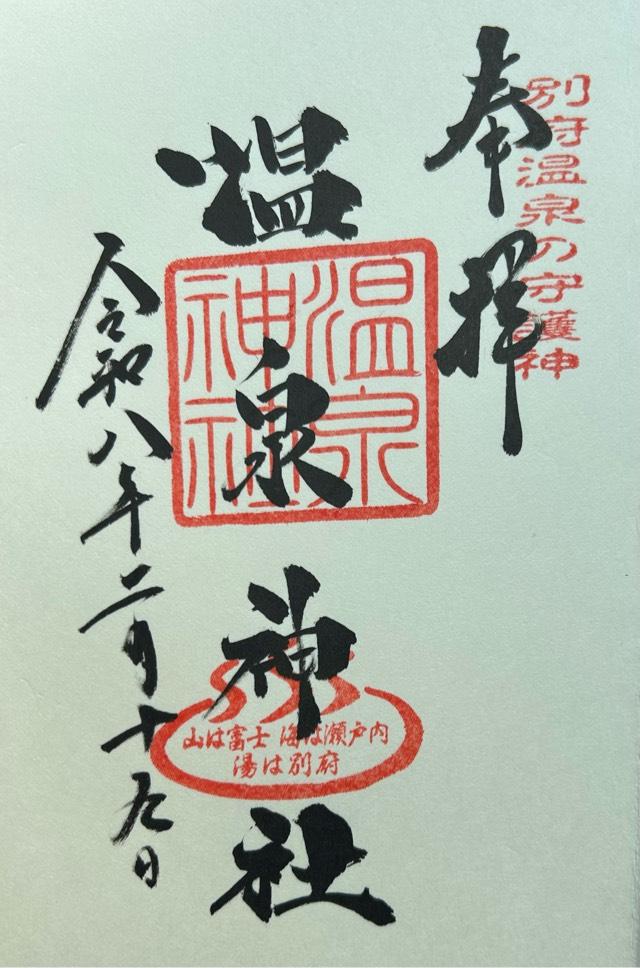 別府温泉の守護神
奉拝
温泉神社
温泉
神社
山は富士 海は瀬戸内
湯は別府
令和八年二月十九日